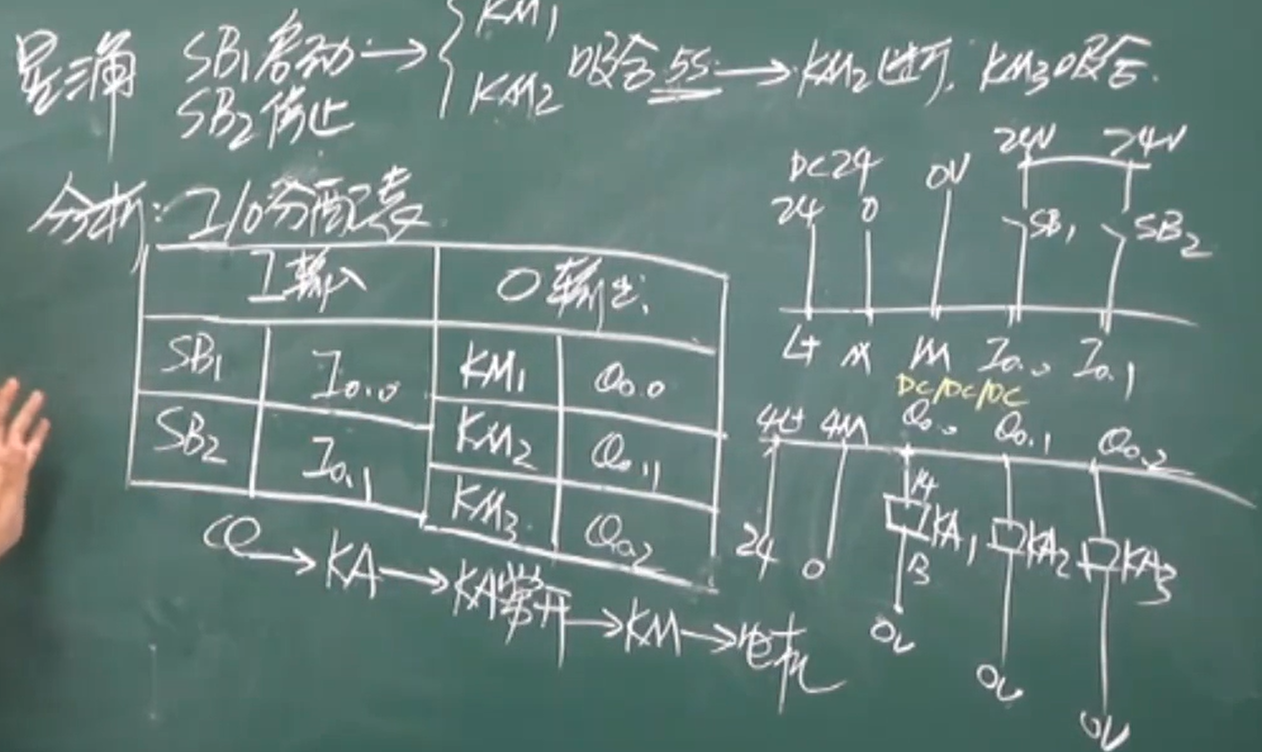 星三角 SB1启动→{KM1 KM2 吸合5S→KM2断开, KM3吸合.
SB2停止
分析: I/O分配表
I输入 O输出
SB1 I0.0 KM1 Q0.0
SB2 I0.1 KM2 Q0.1
KM3 Q0.2
Q→KA→KA常开→KM→电机
DC24 0V 24V 24V
24 0 SB1 SB2
L+ M 1M I0.0 I0.1
DC/DC/DC
4L+ 4M Q0.0 Q0.1 Q0.2
14
KA1 KA2 KA3
24 0 13
0V 0V 0V